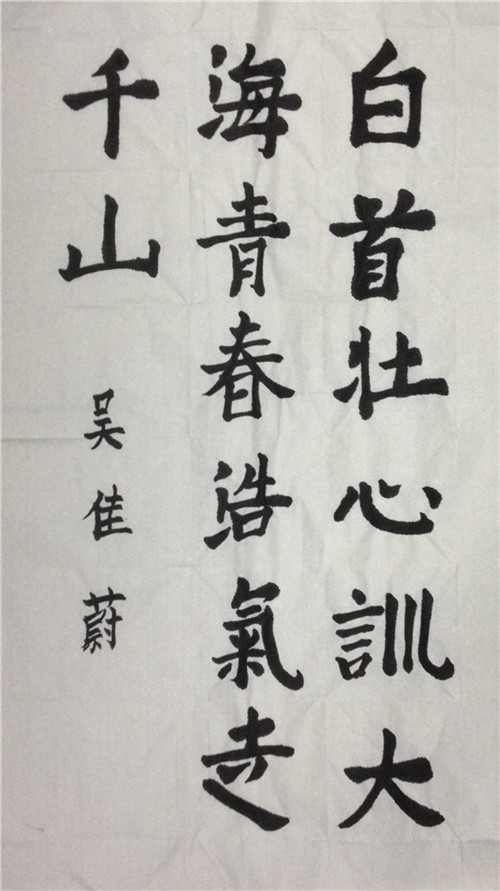 白首壮心訓大
海青春浩氣走
千山
吴佳蔚